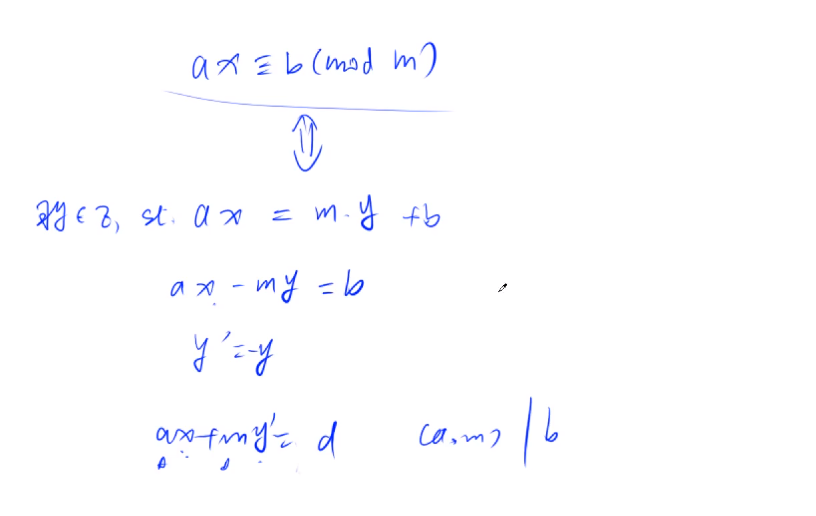 ax ≡ b (mod m)
⇕
∃y ∈ Z, st. ax = m·y + b
ax - my = b
y' = -y
ax + my' = d (a,m) | b